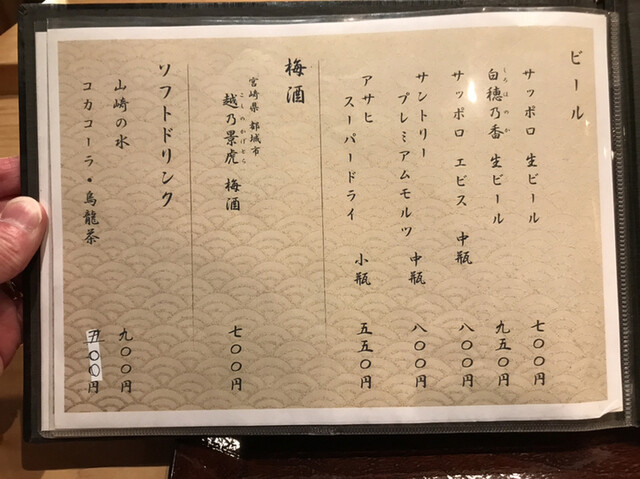 ビール
サッポロ 生ビール 七〇〇円
しろほのか
白穂乃香 生ビール 九五〇円
サッポロ ヱビス 中瓶 八〇〇円
サントリー
プレミアムモルツ 中瓶 八〇〇円
アサヒ
スーパードライ 小瓶 五五〇円
梅酒
宮崎県 都城市
こしのかげとら
越乃景虎 梅酒 七〇〇円
ソフトドリンク
山崎の水 九〇〇円
コカコーラ・烏龍茶 五〇〇円